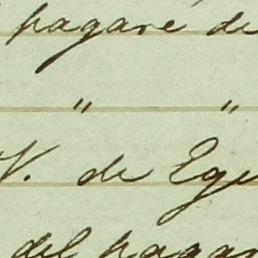 pagaré de
" "
V. de Egu
del pagar